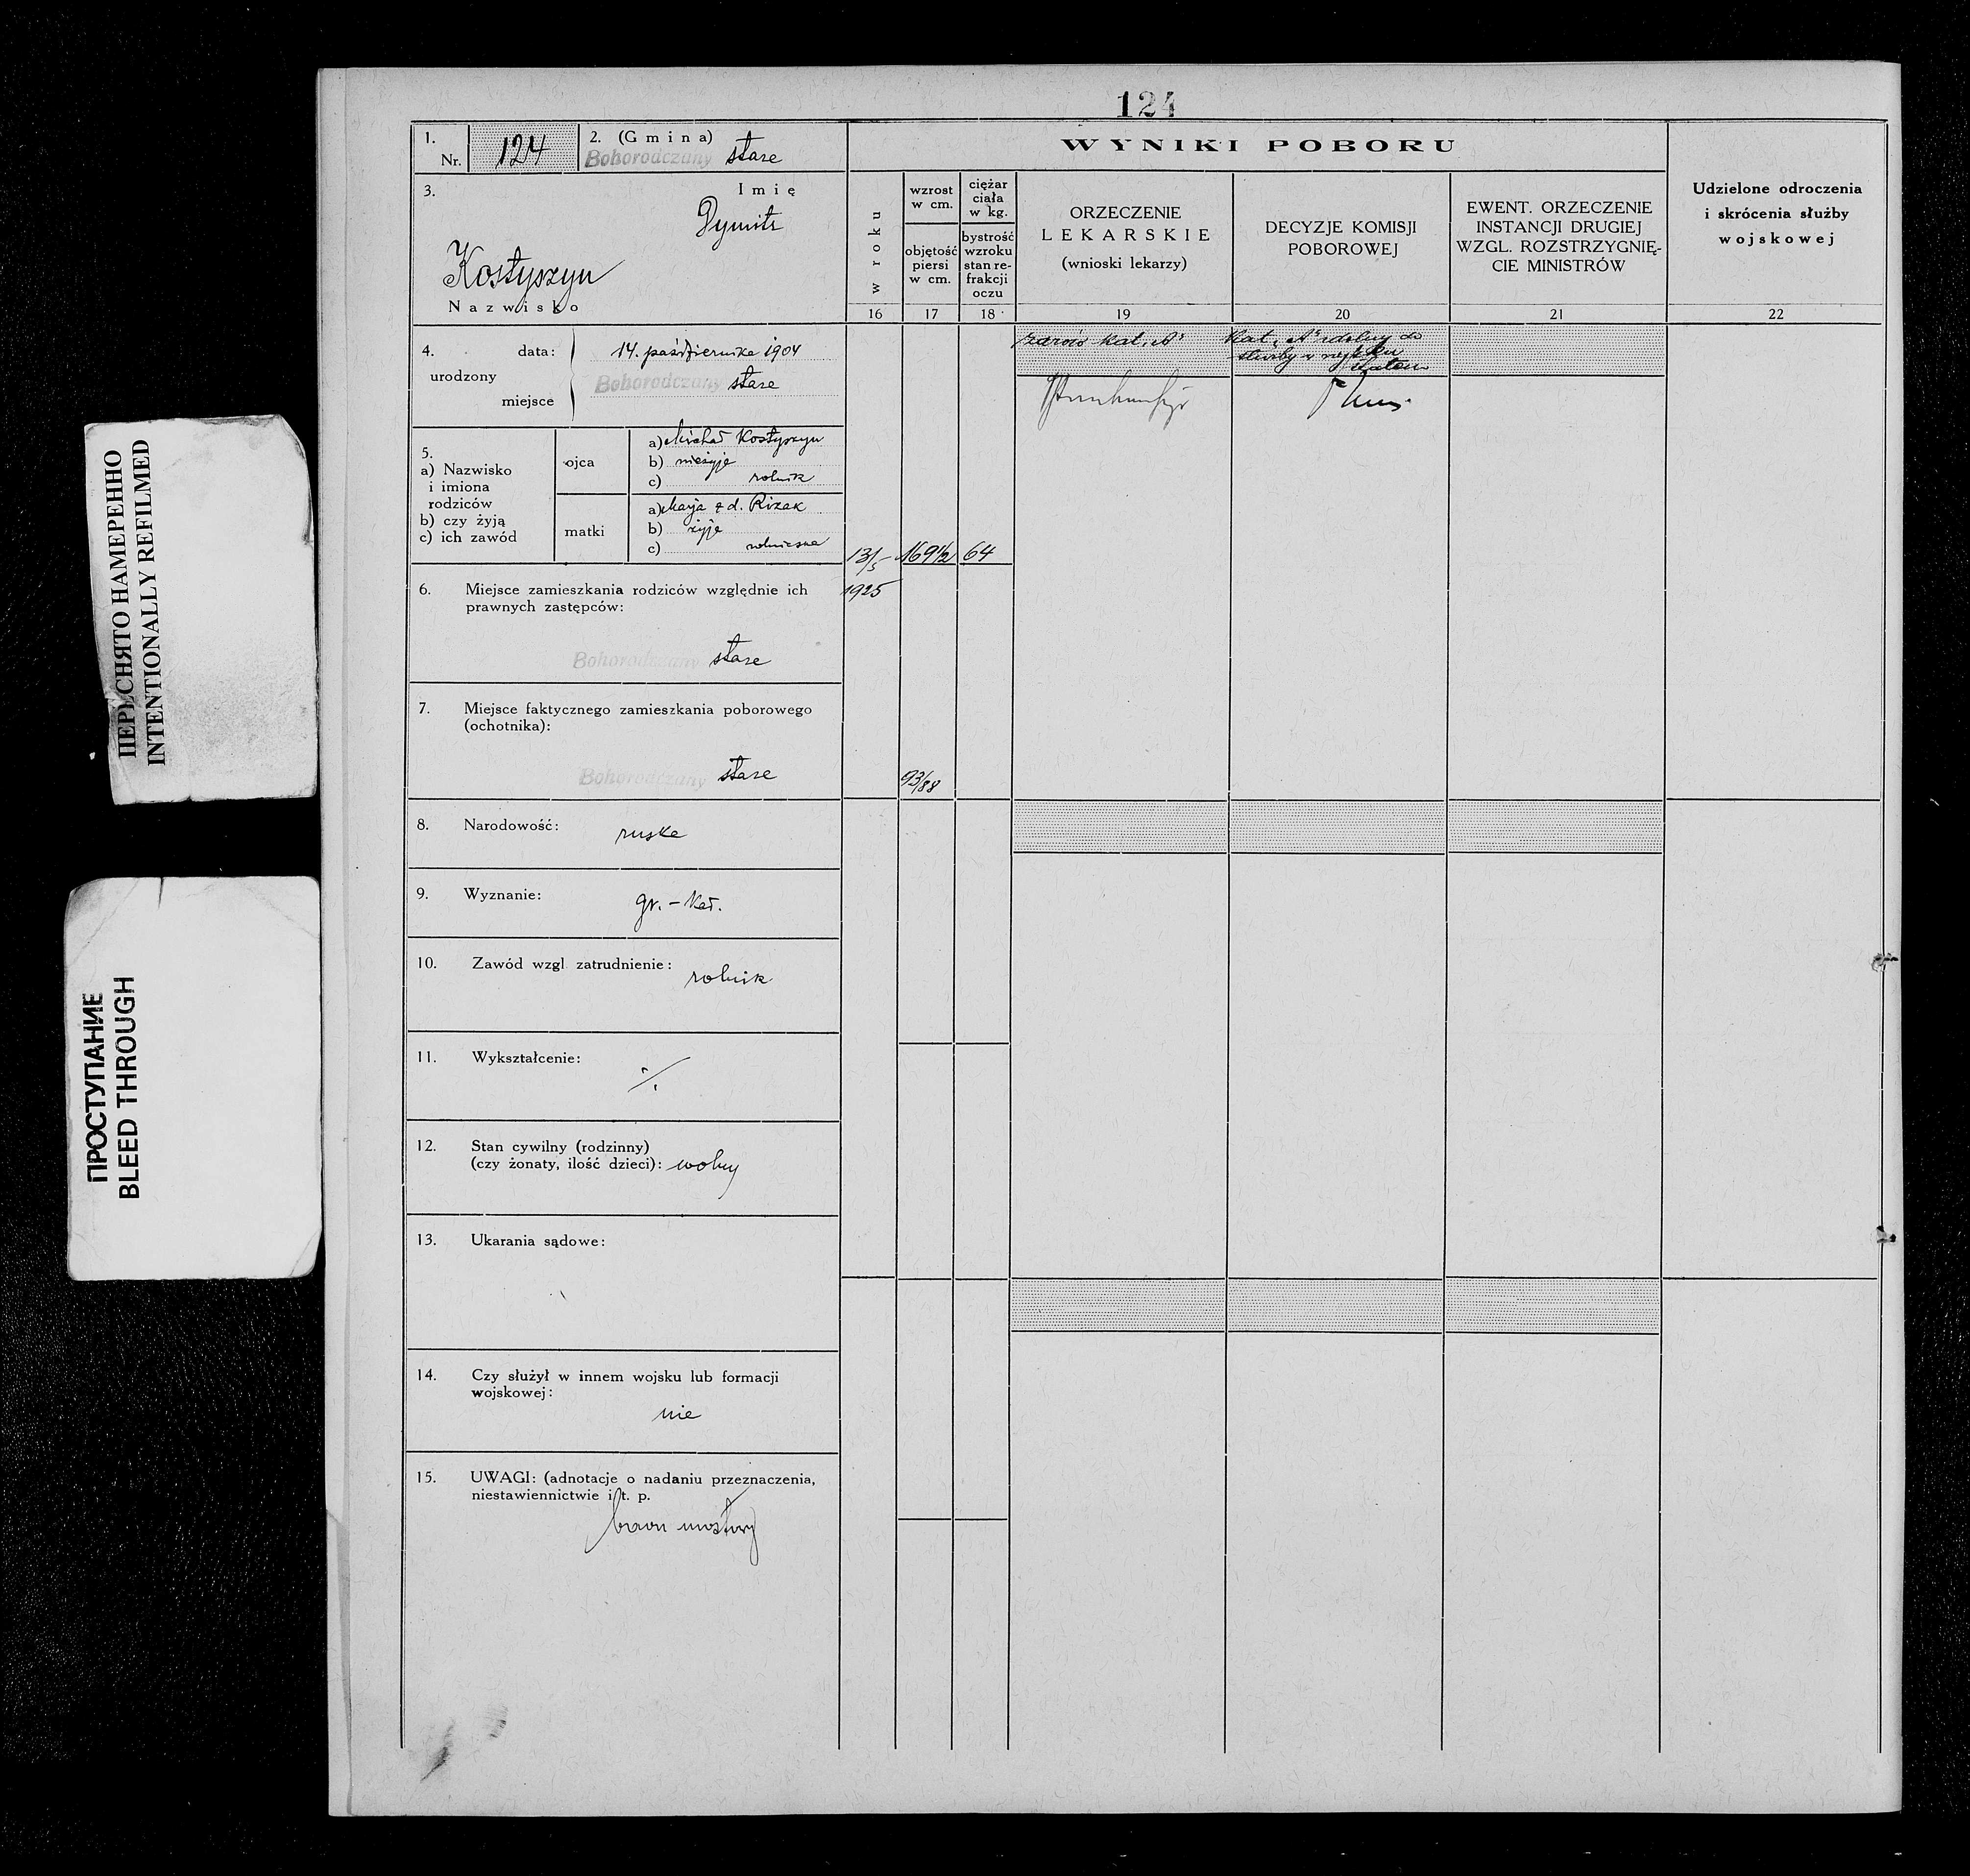 124
1.
Nr. 124
2. (Gmina)
Bohorodczany stare
3.
Imię
Dymitr
Kostyszyn
Nazwisko
4.
urodzony
data: 14. października 1904
miejsce Bohorodczany stare
5.
a) Nazwisko
i imiona
rodziców
b) czy żyją
c) ich zawód
ojca
a) Michał Kostyszyn
b) nieżyje
c) rolnik
matki
a) Marja z d. Rizak
b) żyje
c) rolniczka
6. Miejsce zamieszkania rodziców względnie ich
prawnych zastępców:
Bohorodczany stare
7. Miejsce faktycznego zamieszkania poborowego
(ochotnika):
Bohorodczany stare
8. Narodowość: ruska
9. Wyznanie: gr.-kat.
10. Zawód wzgl. zatrudnienie: rolnik
11. Wykształcenie: ·/.
12. Stan cywilny (rodzinny)
(czy żonaty, ilość dzieci): wolny
13. Ukarania sądowe:
14. Czy służył w innem wojsku lub formacji
wojskowej:
nie
15. UWAGI: (adnotacje o nadaniu przeznaczenia,
niestawiennictwie i t. p.
WYNIKI POBORU
w roku
16
wzrost
w cm.
objętość
piersi
w cm.
17
ciężar
ciała
w kg.
bystrość
wzroku
stan re-
frakcji
oczu
18
ORZECZENIE
LEKARSKIE
(wnioski lekarzy)
19
DECYZJE KOMISJI
POBOROWEJ
20
EWENT. ORZECZENIE
INSTANCJI DRUGIEJ
WZGL. ROZSTRZYGNIĘ-
CIE MINISTRÓW
21
Udzielone odroczenia
i skrócenia służby
wojskowej
22
13/5
1925
169 1/2
64
93/88
zdrów kat. "A"
Kat. "A" zdolny do
służby w wojsku
ПЕРЕСНЯТО НАМЕРЕННО
INTENTIONALLY REFILMED
ПРОСТУПАНИЕ
BLEED THROUGH